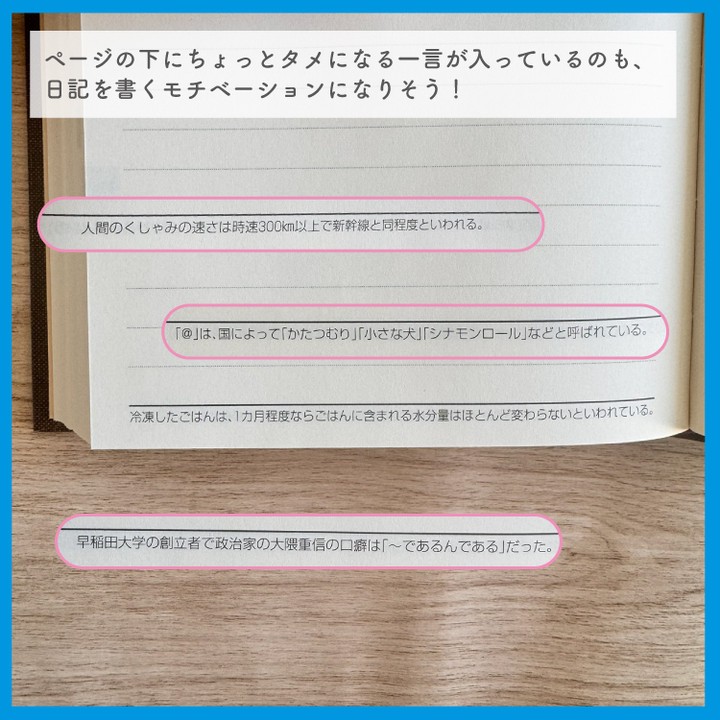 ページの下にちょっとタメになる一言が入っているのも、
日記を書くモチベーションになりそう！
人間のくしゃみの速さは時速300km以上で新幹線と同程度といわれる。
「@」は、国によって「かたつむり」「小さな犬」「シナモンロール」などと呼ばれている。
冷凍したごはんは、1カ月程度ならごはんに含まれる水分量はほとんど変わらないといわれている。
早稲田大学の創立者で政治家の大隈重信の口癖は「～であるんである」だった。